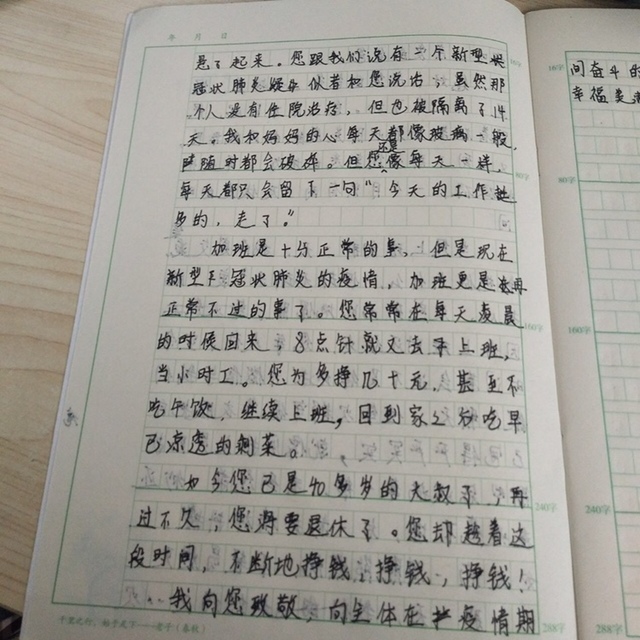 年 月 日
急了起来。您跟我们说有一个新型状
冠状肺炎疑似者和您说话，虽然那
个人没有住院治疗，但也被隔离了14
天。我和妈妈的心每天都像玻璃一般，
随时都会破碎。但您还是像每天一样，
每天都只会留下一句“今天的工作挺
多的，走了。”
加班是十分正常的事，但是现在
新型冠状肺炎的疫情，加班更是再
正常不过的事了。您常常在每天凌晨
的时候回来，8点针就又去上班，
当小时工。您为多挣几十元，甚至不
吃午饭，继续上班，回到家之后吃早
已凉透的剩菜。
如今您已是40多岁的大叔了，再
过不久，您将要退休了。您却趁着这
段时间，不断地挣钱，挣钱，挣钱！
我向您致敬，向主体在疫情期
千里之行，始于足下——老子（春秋）
80字
160字
240字
288字
16字
间奋斗的
幸福美
80字
160字
240字
288字